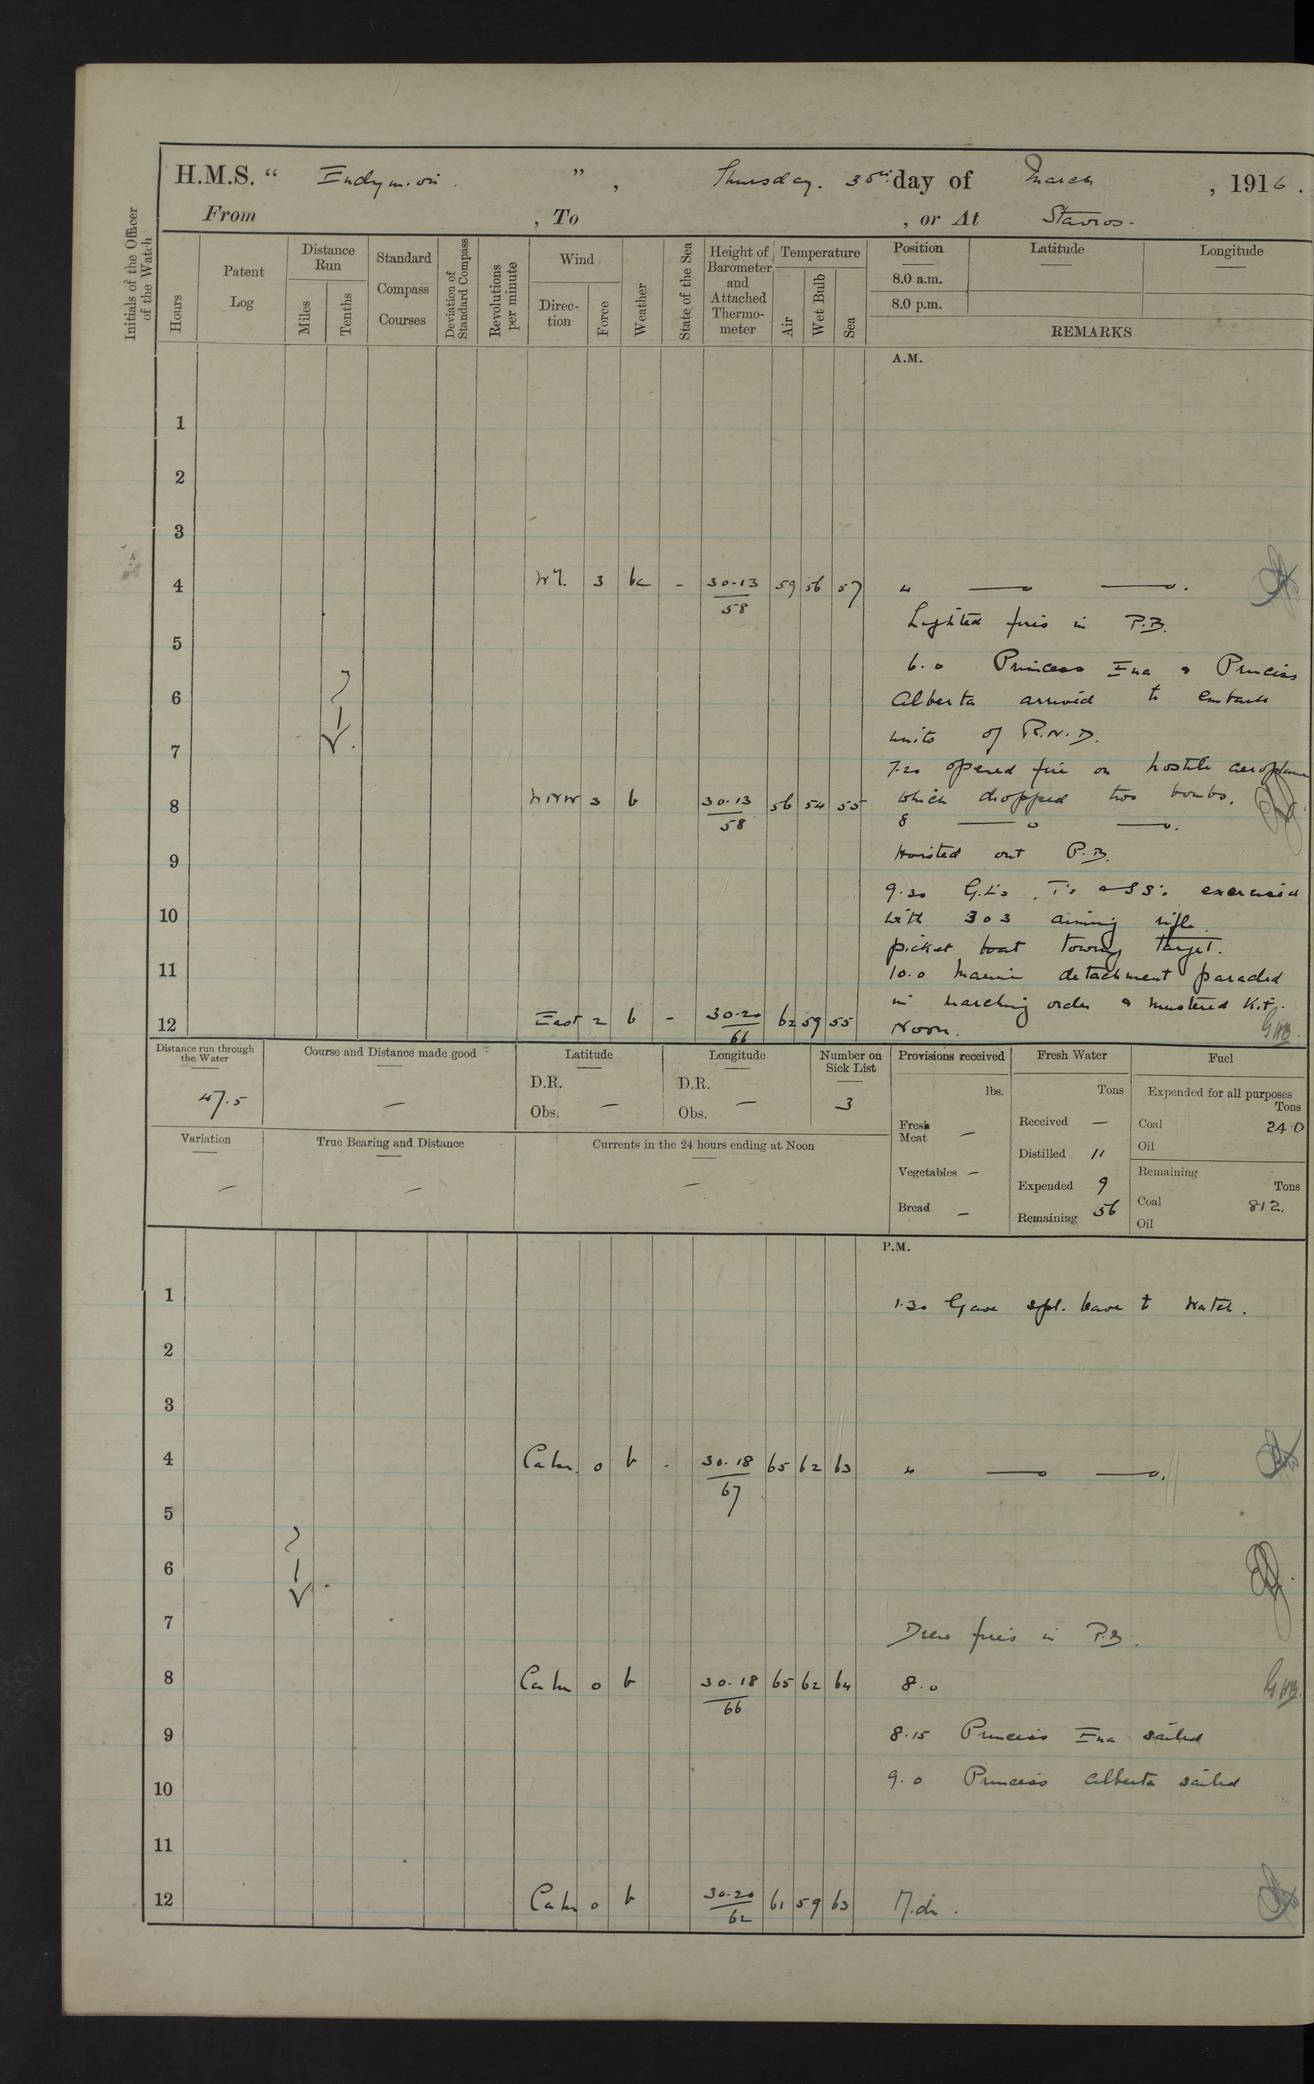 H.M.S. “ Endymion. ” , Thursday. 30th day of March , 1916.
From , To , or At Stavros.
Initials of the Officer of the Watch
Hours
Patent Log
Distance Run
Miles
Tenths
Standard Compass Courses
Deviation of Standard Compass
Revolutions per minute
Wind
Direction
Force
Weather
State of the Sea
Height of Barometer and Attached Thermometer
Temperature
Air
Wet Bulb
Sea
Position
Latitude
Longitude
8.0 a.m.
8.0 p.m.
REMARKS
A.M.
1
2
3
4 3 bc - 30.13 59 56 57 "
58
Lighted fires in P.B.
5
6.0 Princess Ena & Princess
6 Alberta arrived to embark
units of R.N.D.
7
7.20 opened fire on hostile aeroplane
8 NNW 3 b 30.13 56 54 55 which dropped two bombs.
58 8
9 Hoisted out P.B.
9.30 G.L's, T's & SS's exercised
10 with 303 aiming rifle.
picket boat towing target.
11 10.0 Marine detachment paraded
in marching order & mustered Kit.
12 East 2 b - 30.20 62 59 55 Noon. GHB.
66
Distance run through the Water
47.5
Course and Distance made good
—
Latitude
D.R.
Obs. —
Longitude
D.R.
Obs. —
Number on Sick List
3
Provisions received
lbs.
Fresh Meat —
Vegetables —
Bread —
Fresh Water
Tons
Received —
Distilled 11
Expended 9
Remaining 56
Fuel
Expended for all purposes
Tons
Coal 24.0
Oil
Remaining
Tons
Coal 812.
Oil
Variation
—
True Bearing and Distance
—
Currents in the 24 hours ending at Noon
—
P.M.
1 1.30 Gave spl. leave to Watch.
2
3
4 Calm. 0 b - 30.18 65 62 63 "
67
5
6
7 Drew fires in P.B.
8 Calm 0 b 30.18 65 62 64 8.0 GHB.
66
9 8.15 Princess Ena sailed
10 9.0 Princess Alberta sailed
11
12 Calm 0 b 30.20 61 59 63 Mdt.
62